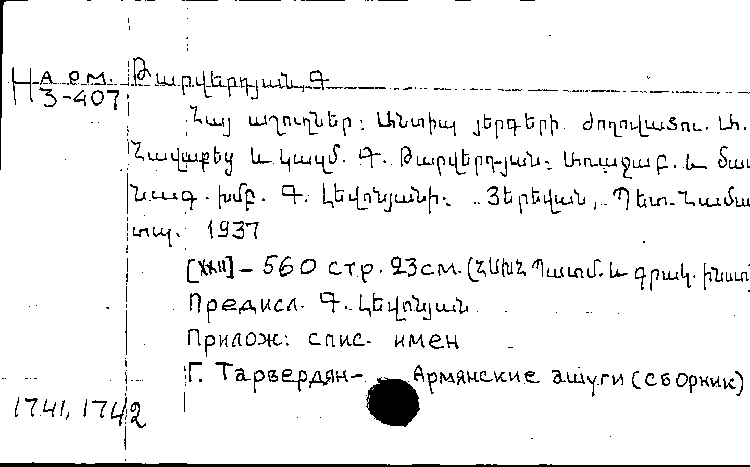 Н арм. Թարվերդյան, Գ
3-407
Հայ աշուղներ: Անտիպ յերգերի ժողովածու. Ա.
Հավաքեց և կազմ. Գ. Թարվերդյան: Առաջաբ. և մատ
նագ. խմբ. Գ. Լեվոնյանի: Յերեվան, Պետ. Համա
տպ. 1937
[XXII] – 560 стр. 23см. (ՀՍԽՀ Պատմ. և գրակ. ինստ
Предисл. Գ. Լեվոնյան
Прилож: спис. имен
Г. Тарвердян– Армянские ашуги (сборник)
1741, 1742